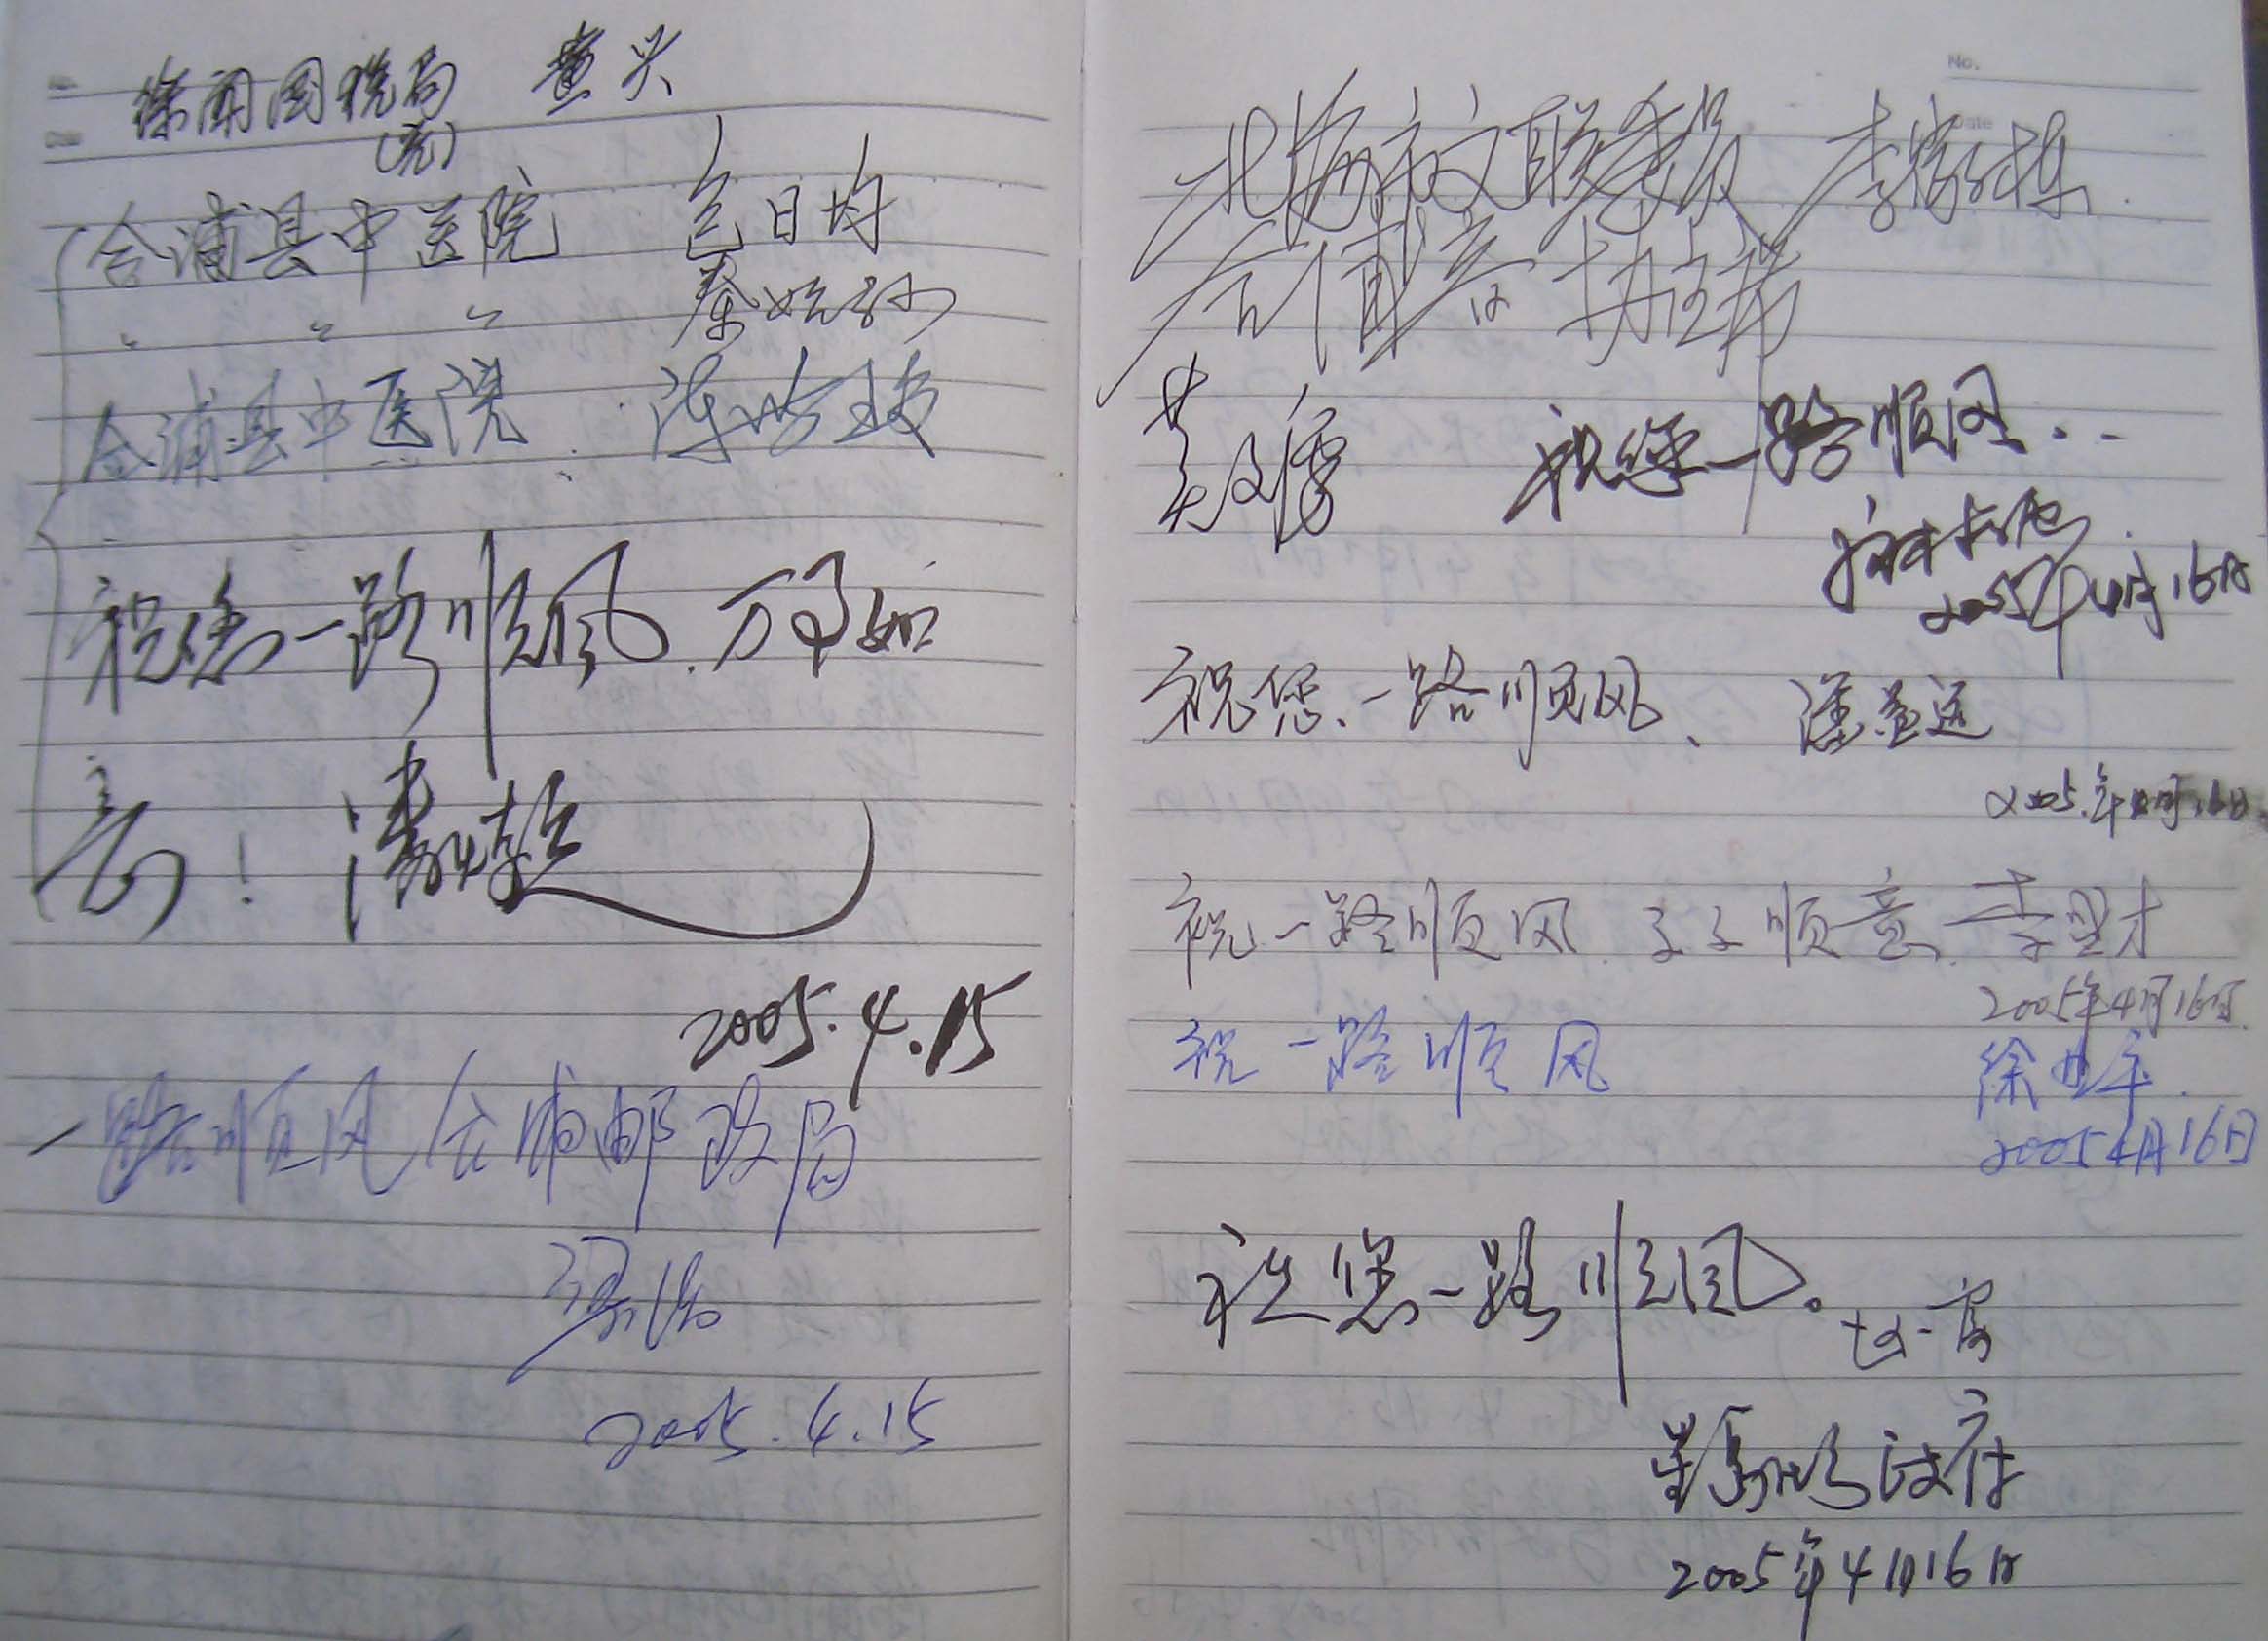 徐闻国税局
合浦县中医院 包日均
〃 〃 〃 秦
合浦县中医院 陈
祝您一路顺风.万事如
意! 潘
2005.4.15
一路顺风 合浦邮政局
2005.4.15
No.
Date
北海市文联委员 李
合浦县音协主席
祝您一路顺风..
2005年4月16日
祝您、一路顺风、 潘
2005.年4月16日
祝一路顺风. 事事顺意. 李
2005年4月16日.
祝一路顺风 徐
2005 4月16日
祝您一路顺风。
政府
2005年4月16日